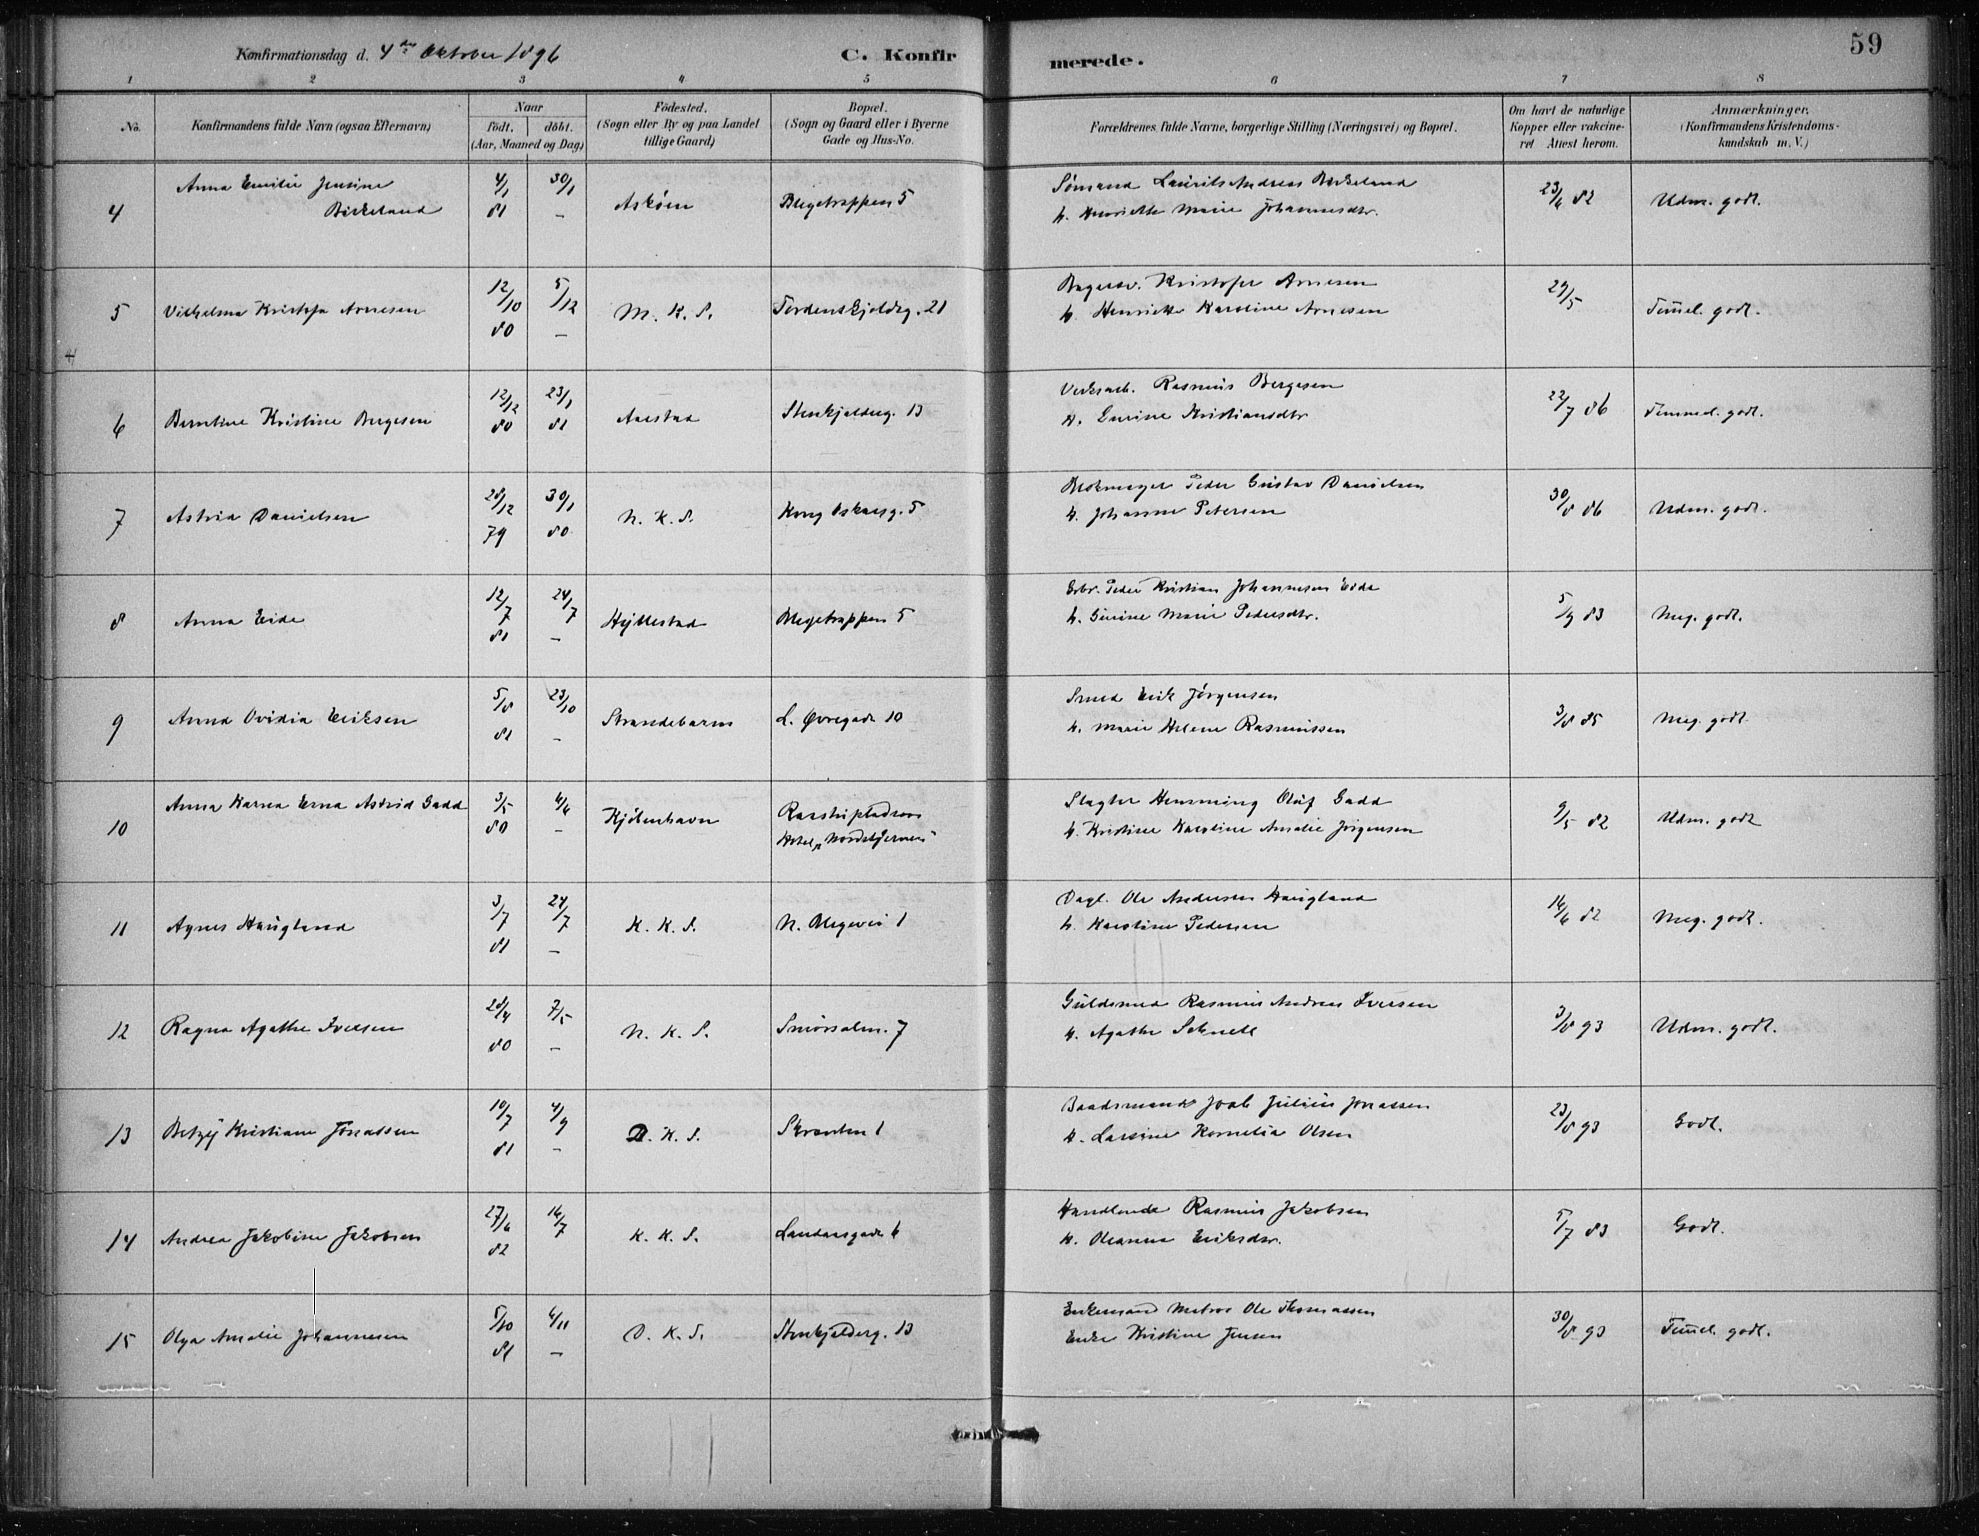 59
Konfirmationsdag d. 4de Oktober 1896
C. Konfirmerede.
1 2 3 4 5 6 7 8
No.
Konfirmandens fulde Navn (ogsaa Efternavn)
Naar
født. døbt.
(Aar, Maaned og Dag)
Fødested.
(Sogn eller By og paa Landet
tillige Gaard)
Bopæl.
(Sogn og Gaard eller i Byerne
Gade og Hus-No.
Forældrenes fulde Navne, borgerlige Stilling (Næringsvei) og Bopæl.
Om havt de naturlige
Kopper eller vakcine-
ret Attest herom.
Anmærkninger.
(Konfirmandens Kristendoms-
kundskab m. V.)
4 Anna Emilie Jensine Birkeland 4/1 81 30/1 – Askøen Blegetrappen 5
Sømand Laurits Andreas Birkeland
h. Henriette Marie Johannesdtr.
23/6 82 Udm. godt.
5 Vilhelma Kristofa Arnesen 12/10 80 5/12 – M. K. S. Tordenskjoldsg. 21
Bagersv. Kristofer Arnesen
h. Henriette Karoline Arnesen
29/5 Temmel. godt.
6 Berntine Kristine Bergesen 12/12 80 23/1 81 Aarstad Stenkjelderg. 13
Verksarb. Rasmus Bergesen
h. Gurine Kristiansdtr
22/7 86 Temmel. godt.
7 Astrid Danielsen 28/12 79 30/1 80 N. K. S. Kong Oskarsg. 5
Blokmager Peder Gustav Danielsen
h. Johanne Petersen
30/8 86 Udm. godt.
8 Anna Eide 12/7 81 24/7 – Hyllestad Blegetrappen 5
Peder Kristian Johannesen Eide
h. Gurine Marie Pedersdtr.
5/9 83 Meg. godt.
9 Anna Ovidia Eriksen 5/8 81 23/10 – Strandebarm L. Øvregade 10
Smed Erik Jørgensen
h. Marie Helene Rasmussen
3/8 85 Meg. godt
10 Anna Karna Erna Astrid Gadd 3/5 80 4/6 – Kjøbenhavn
Hotel „Nordstjernen"
Slagter Hemming Oluf Gadd
h. Kristine Karoline Amalie Jørgensen
9/5 82 Udm. godt
11 Agnes Haugland 3/7 81 24/7 – K. K. S. N. Blegevei 1
Dagl. Ole Andersen Haugland
h. Karoline Pedersen
14/6 82 Meg. godt.
12 Ragna Agathe Iversen 28/4 80 7/5 – N. K. S. Smørsalm. 7
Guldsmed Rasmus Andreas Iversen
h. Agathe Schnell
3/8 93 Udm. godt.
13 Betzy Kristiane Jonassen 10/7 81 4/9 – D. K. S. Skranten 1
Baadsmand Joab Julius Jonassen
h. Larsine Kornelia Olsen
23/8 93 Godt.
14 Andrea Jakobine Jakobsen 27/6 82 16/7 K. K. S. Landaasgade 6
Handlende Rasmus Jakobsen
h. Oleanna Eriksdtr.
5/7 83 Godt.
15 Olga Amalie Johannesen 5/10 81 4/11 – D. K. S. Stenkjelderg. 13
Enkemand Matros Ole Thomassen
Enke Kristine Jensen
30/8 93 Temmel. godt.